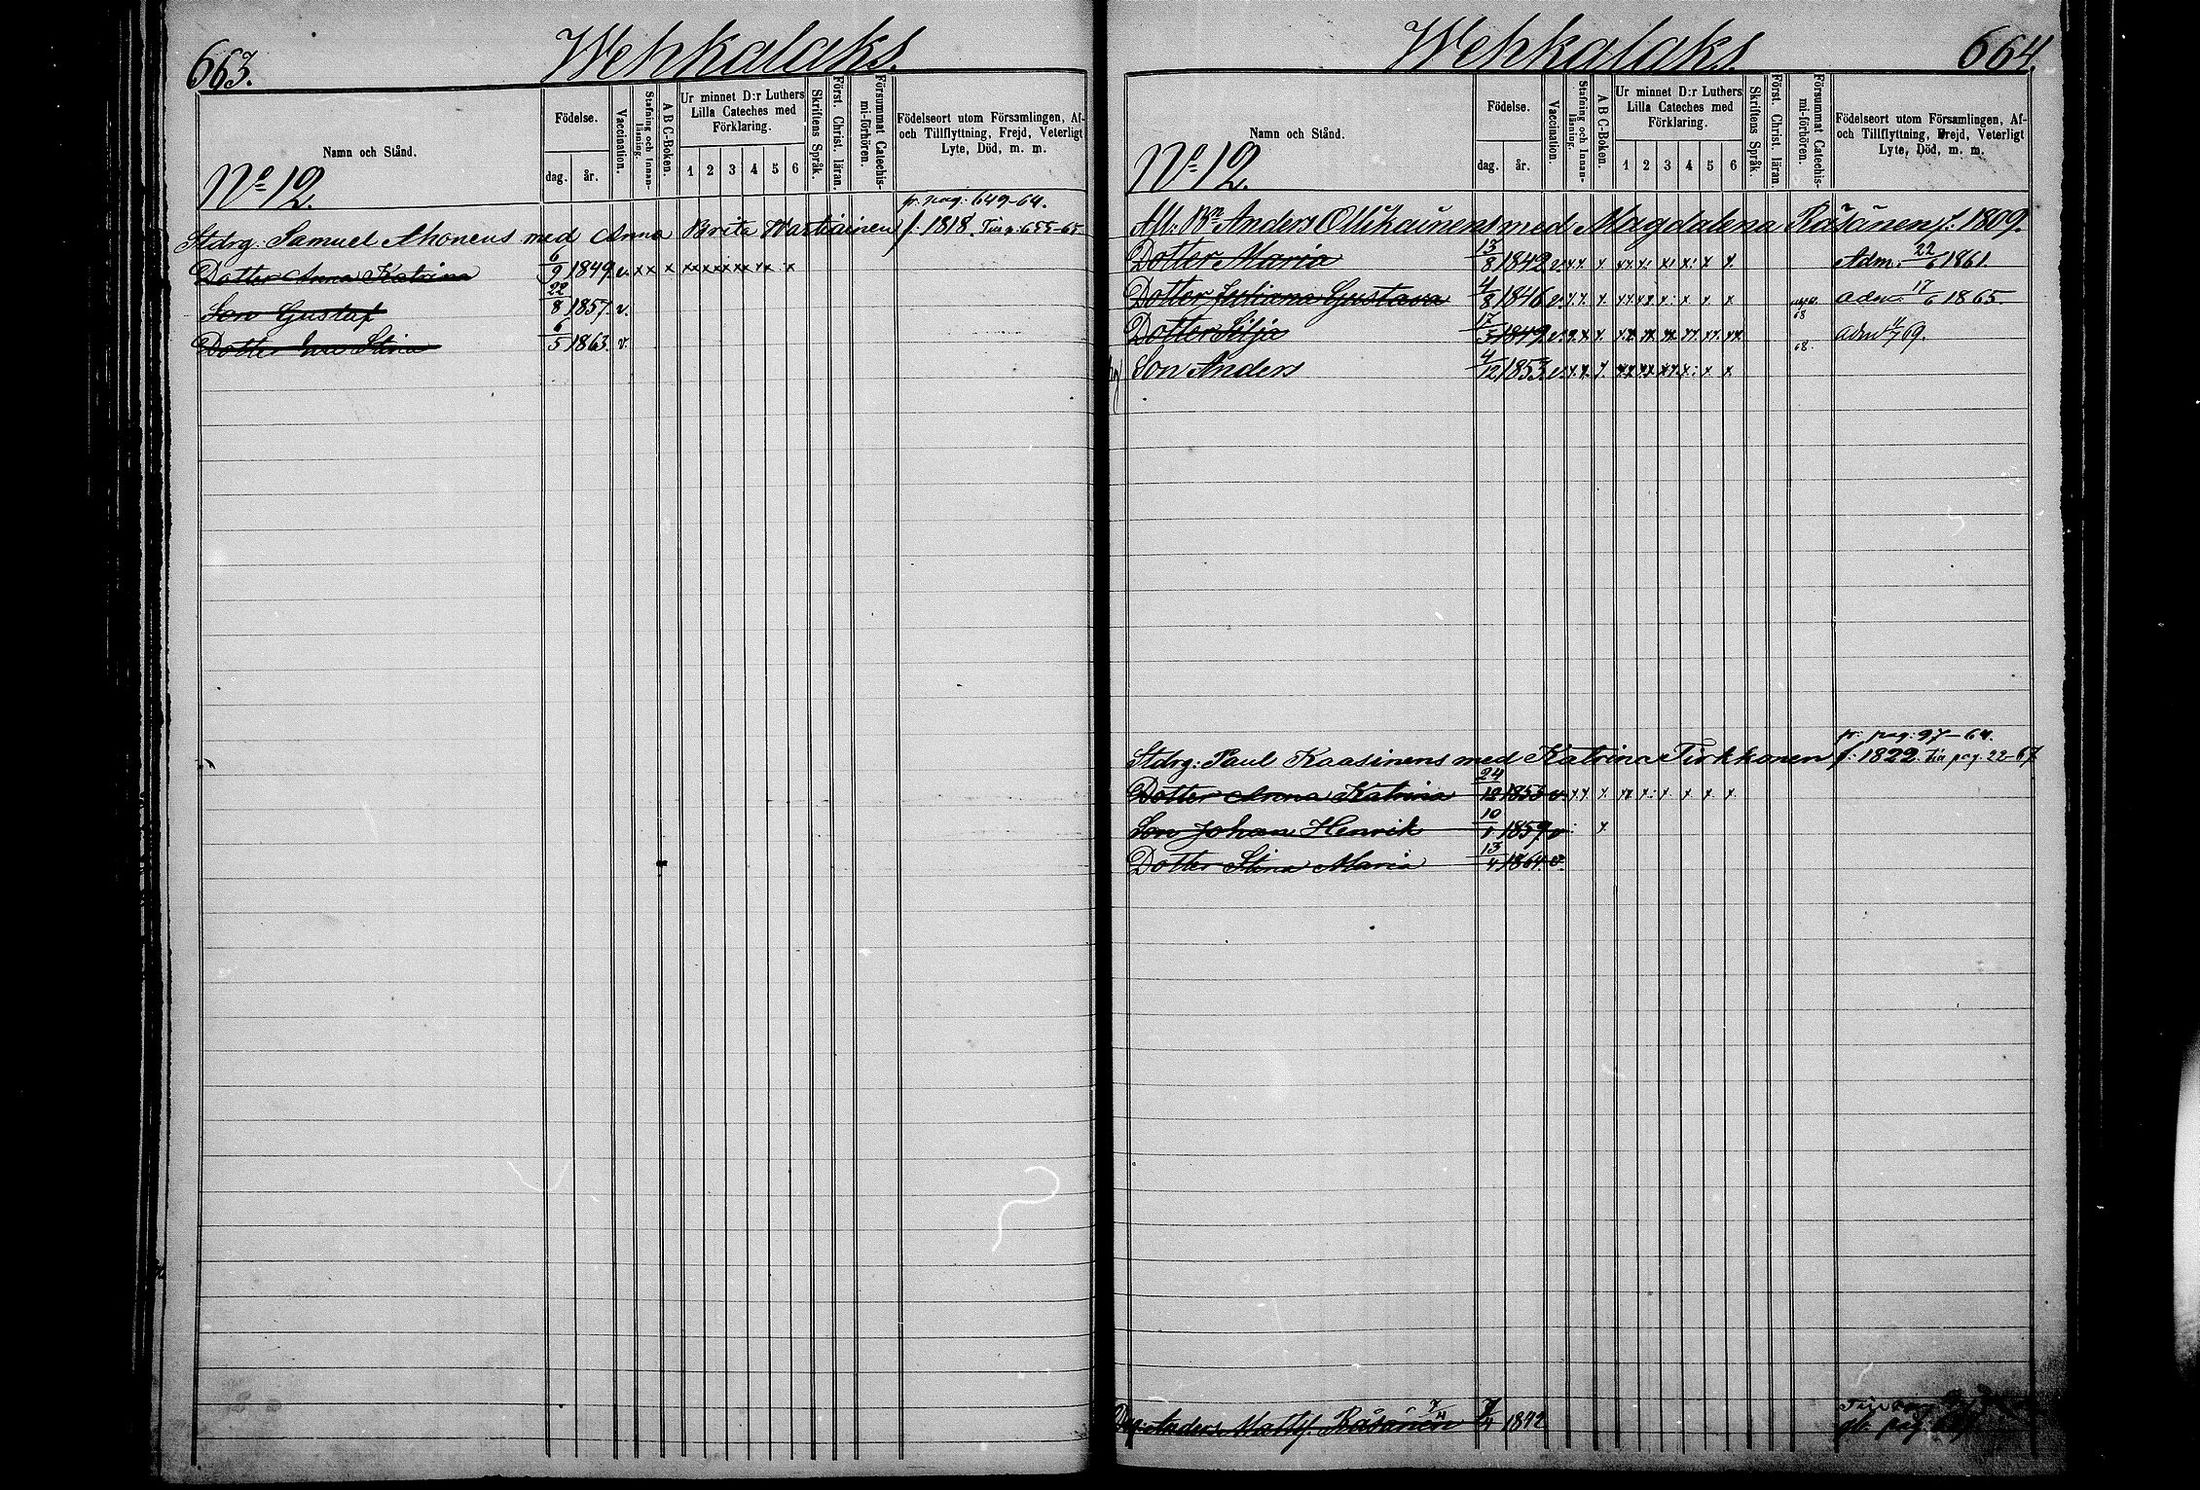 663.
Wehkalaks.
Namn och Stånd.
Födelse.
dag.
år.
Vaccination.
Stafning och Innanläsning.
A B C-Boken.
Ur minnet D:r Luthers Lilla Cateches med Förklaring.
1 2 3 4 5 6
Skriftens Språk.
Först. Christ. läran.
Försummat Catechismi-förhören.
Födelseort utom Församlingen, Af- och Tillflyttning, Frejd, Veterligt Lyte, Död, m. m.
No 12.
fr. pag: 649-64.
Stdrg: Samuel Ahonens med Anna Brita Wartiainen f. 1818.
Dotter Anna Katrina 6/9 1849 v. x x x x x x x x x x x x x
Son Gustaf 22/8 1857. v.
Dotter Eva Stina 6/5 1863. v.
Wehkalaks.
664.
Namn och Stånd.
Födelse.
dag.
år.
Vaccination.
Stafning och Innanläsning.
A B C-Boken.
Ur minnet D:r Luthers Lilla Cateches med Förklaring.
1 2 3 4 5 6
Skriftens Språk.
Först. Christ. läran.
Försummat Catechismi-förhören.
Födelseort utom Församlingen, Af- och Tillflyttning, Frejd, Veterligt Lyte, Död, m. m.
No 12.
Afl: Bn Anders Ollikainens med Magdalena Räsänen f. 1809.
Dotter Maria 13/8 1842 v. x x x x x x x x x x Adm. 22/6 1861.
Dotter Juliana Gustava 4/8 1846 v. x x x x x x x x x x 68 adm. 17/6 1865.
Dotter Silja 17/5 1849 v. x x x x x x x x x x 68. adm 69.
Son Anders 4/12 1853 v. x x x x x x x x x x
fr. pag: 97-64.
Stdrg: Paul Kaasinens med Katrina Tirkkonen f. 1822. Tir pag. 22-67
Dotter Anna Katrina 24/12 1855 v. x x x x x x x x x
Son Johan Henrik 10/1 1859 v x
Dotter Stina Maria 13/4 1864 v.
Anders Matts. Räsänen 7/4 1842